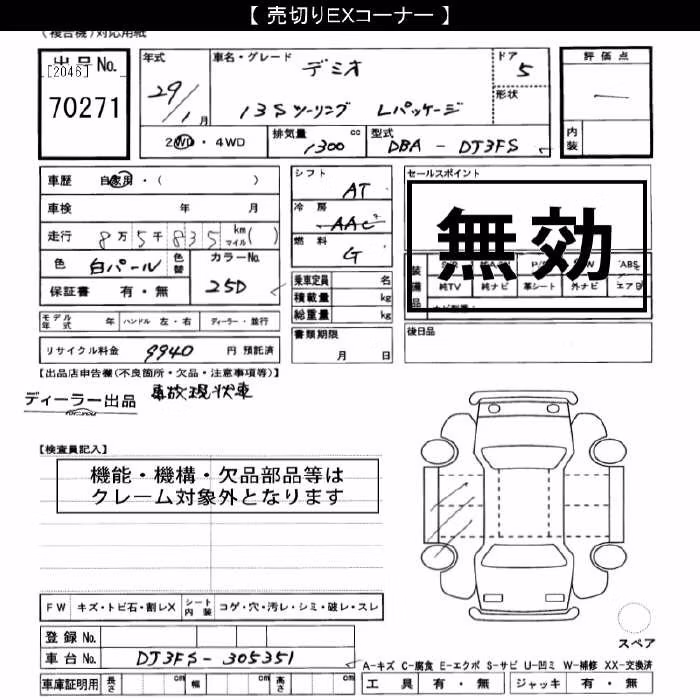 【 売切りEXコーナー 】
(複合機)対応用紙
出品No.
[2046]
70271
年式
29/1月
車名・グレード
デミオ
13S ツーリング Lパッケージ
ドア
5
形状
評価点
—
内装
2WD・4WD
排気量 cc
1300
型式
DBA - DJ3FS
車歴 自家用・( )
車検 年 月
走行 8万5千835 km マイル( )
色 白パール 色替
カラーNo. 25D
保証書 有・無
シフト AT
冷房 AAC
燃料 G
乗車定員 名
積載量 kg
総重量 kg
セールスポイント
無効
装備品
ABS
純TV 純ナビ 革シート 外ナビ エアB
モデル年式 年 ハンドル 左・右 ディーラー・並行
書類期限
月 日
後日品
リサイクル料金 9940 円 預託済
【出品店申告欄(不良箇所・欠品・注意事項等)】
ディーラー出品
事故現状車
【検査員記入】
機能・機構・欠品部品等は
クレーム対象外となります
FW キズ・トビ石・割レX シート内装 コゲ・穴・汚レ・シミ・破レ・スレ
登録No.
車台No. DJ3FS-305351
スペア
A-キズ C-腐食 E-エクボ S-サビ U-凹ミ W-補修 XX-交換済
車庫証明用 長さ cm 幅 cm 高さ cm
工具 有・無 ジャッキ 有・無